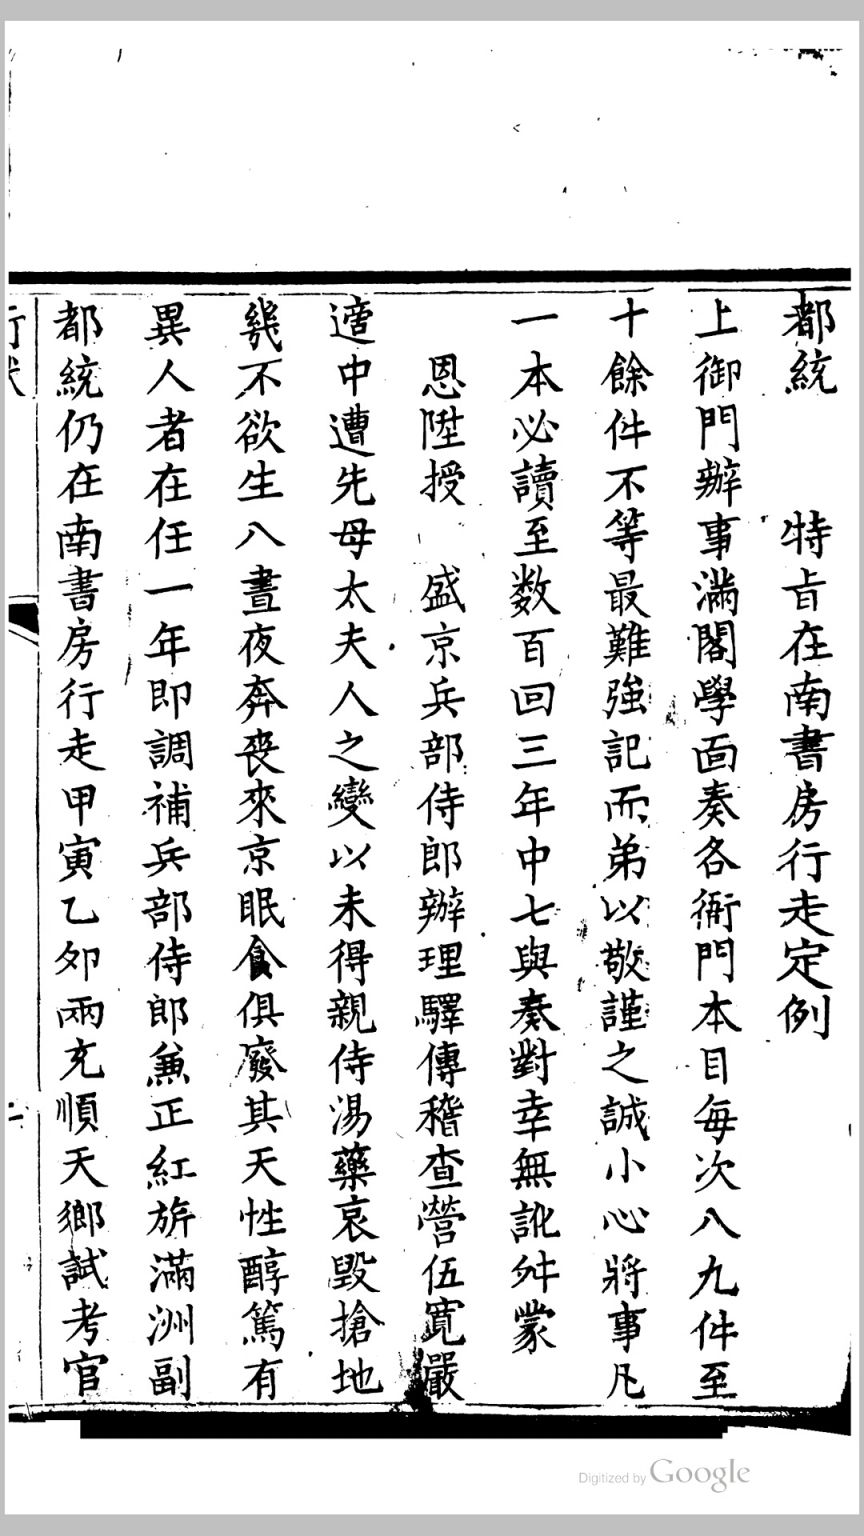 都統　　特旨在南書房行走定例
上御門辦事滿閣學面奏各衙門本目每次八九件至
十餘件不等最難強記而弟以敬謹之誠小心將事凡
一本必讀至数百回三年中七與奏對幸無訛舛蒙
恩陞授　盛京兵部侍郎辦理驛傳稽查營伍寬嚴
適中遭先母太夫人之變以未得親侍湯藥哀毀搶地
幾不欲生八晝夜奔喪來京眠食俱廢其天性醇篤有
異人者在任一年即調補兵部侍郎兼正紅旂滿洲副
都統仍在南書房行走甲寅乙卯兩充順天鄉試考官
行狀
Digitized by Google